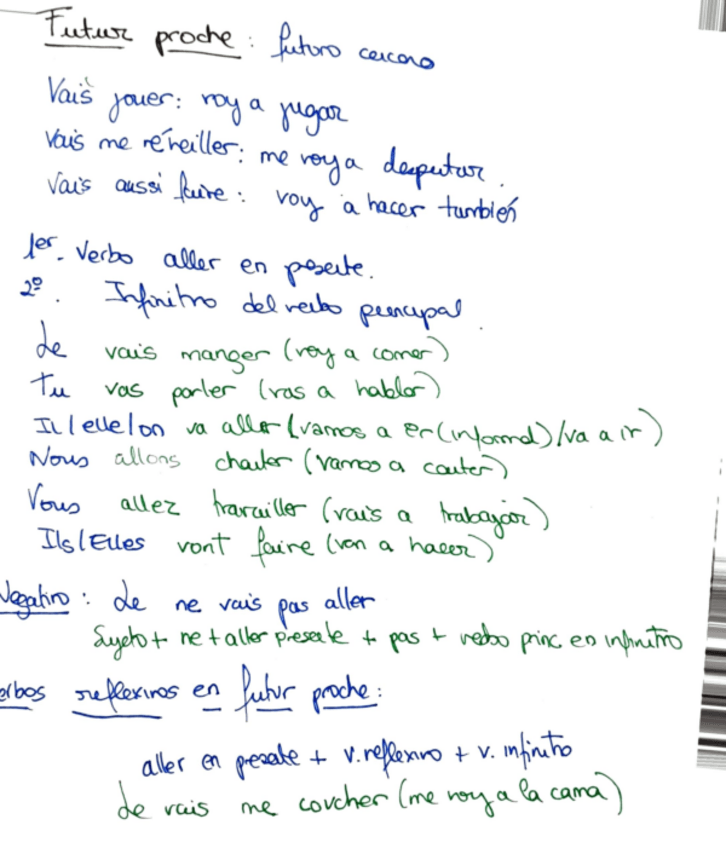 Futur proche : futuro cercano
Vais jouer: voy a jugar
Vais me réveiller: me voy a despertar.
Vais aussi faire : voy a hacer también
1er. Verbo aller en presente.
2º. Infinitivo del verbo principal.
Je vais manger (voy a comer)
Tu vas parler (vas a hablar)
Il/elle/on va aller (vamos a er (informal)/va a ir)
Nous allons chanter (vamos a cantar)
Vous allez travailler (vais a trabajar)
Ils/Elles vont faire (van a hacer)
Negativo : Je ne vais pas aller
Sujeto + ne + aller presente + pas + verbo princ en infinitivo
erbos reflexivos en futur proche :
aller en presente + v. reflexivo + v. infinitivo
Je vais me coucher (me voy a la cama)